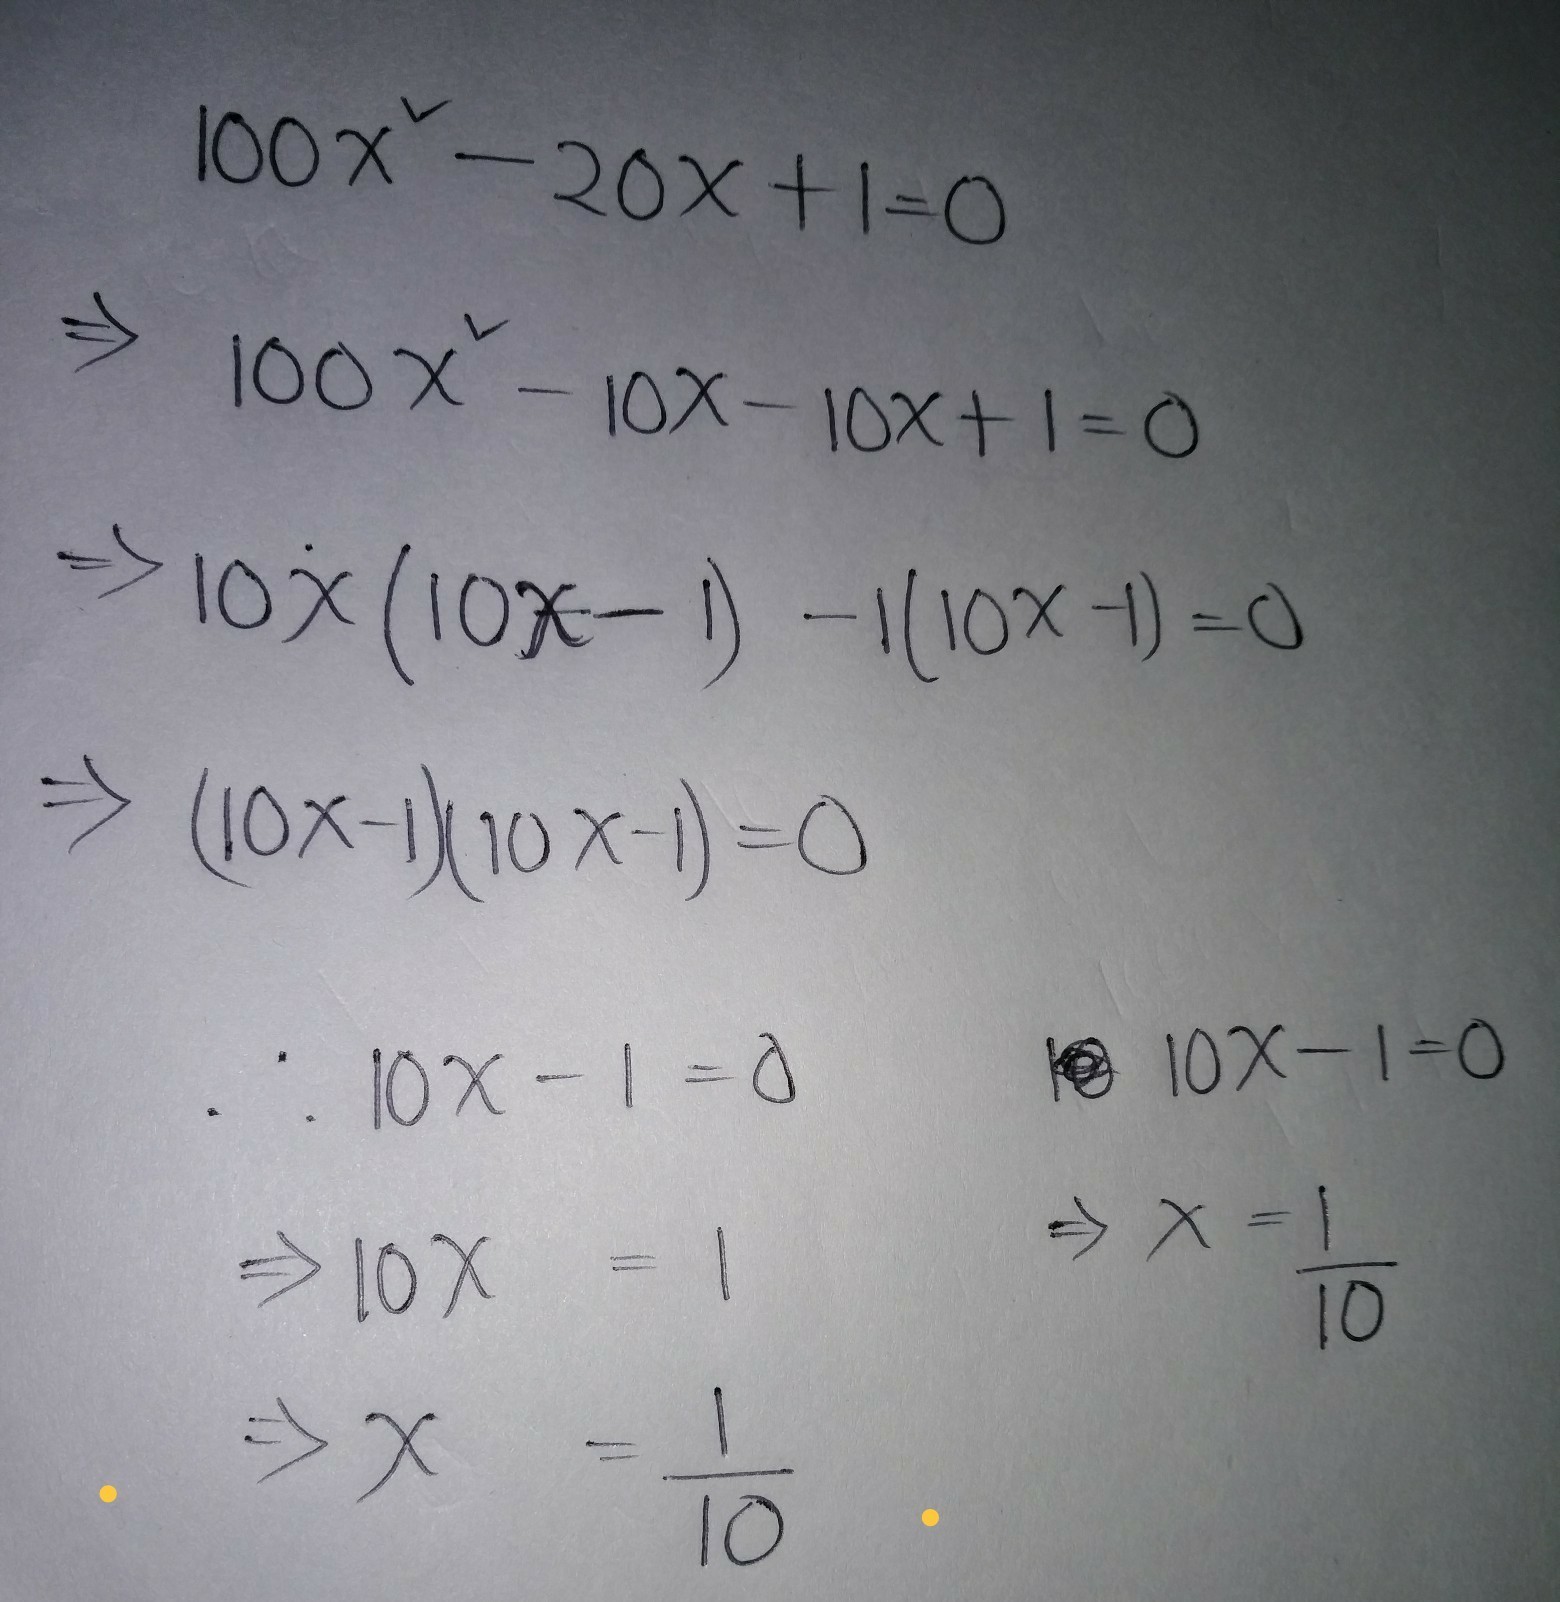 100x² - 20x + 1 = 0
⇒ 100x² - 10x - 10x + 1 = 0
⇒ 10x(10x - 1) - 1(10x - 1) = 0
⇒ (10x - 1)(10x - 1) = 0
∴ 10x - 1 = 0
⇒ 10x = 1
⇒ x = 1/10
10x - 1 = 0
⇒ x = 1/10